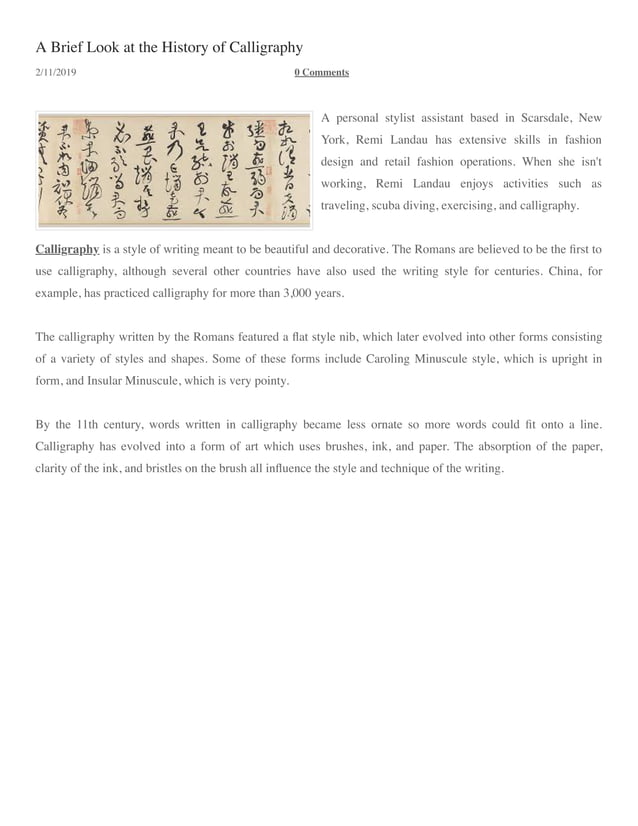 A Brief Look at the History of Calligraphy
2/11/2019
0 Comments
A personal stylist assistant based in Scarsdale, New
York, Remi Landau has extensive skills in fashion
design and retail fashion operations. When she isn't
working, Remi Landau enjoys activities such as
traveling, scuba diving, exercising, and calligraphy.
Calligraphy is a style of writing meant to be beautiful and decorative. The Romans are believed to be the first to
use calligraphy, although several other countries have also used the writing style for centuries. China, for
example, has practiced calligraphy for more than 3,000 years.
The calligraphy written by the Romans featured a flat style nib, which later evolved into other forms consisting
of a variety of styles and shapes. Some of these forms include Caroling Minuscule style, which is upright in
form, and Insular Minuscule, which is very pointy.
By the 11th century, words written in calligraphy became less ornate so more words could fit onto a line.
Calligraphy has evolved into a form of art which uses brushes, ink, and paper. The absorption of the paper,
clarity of the ink, and bristles on the brush all influence the style and technique of the writing.